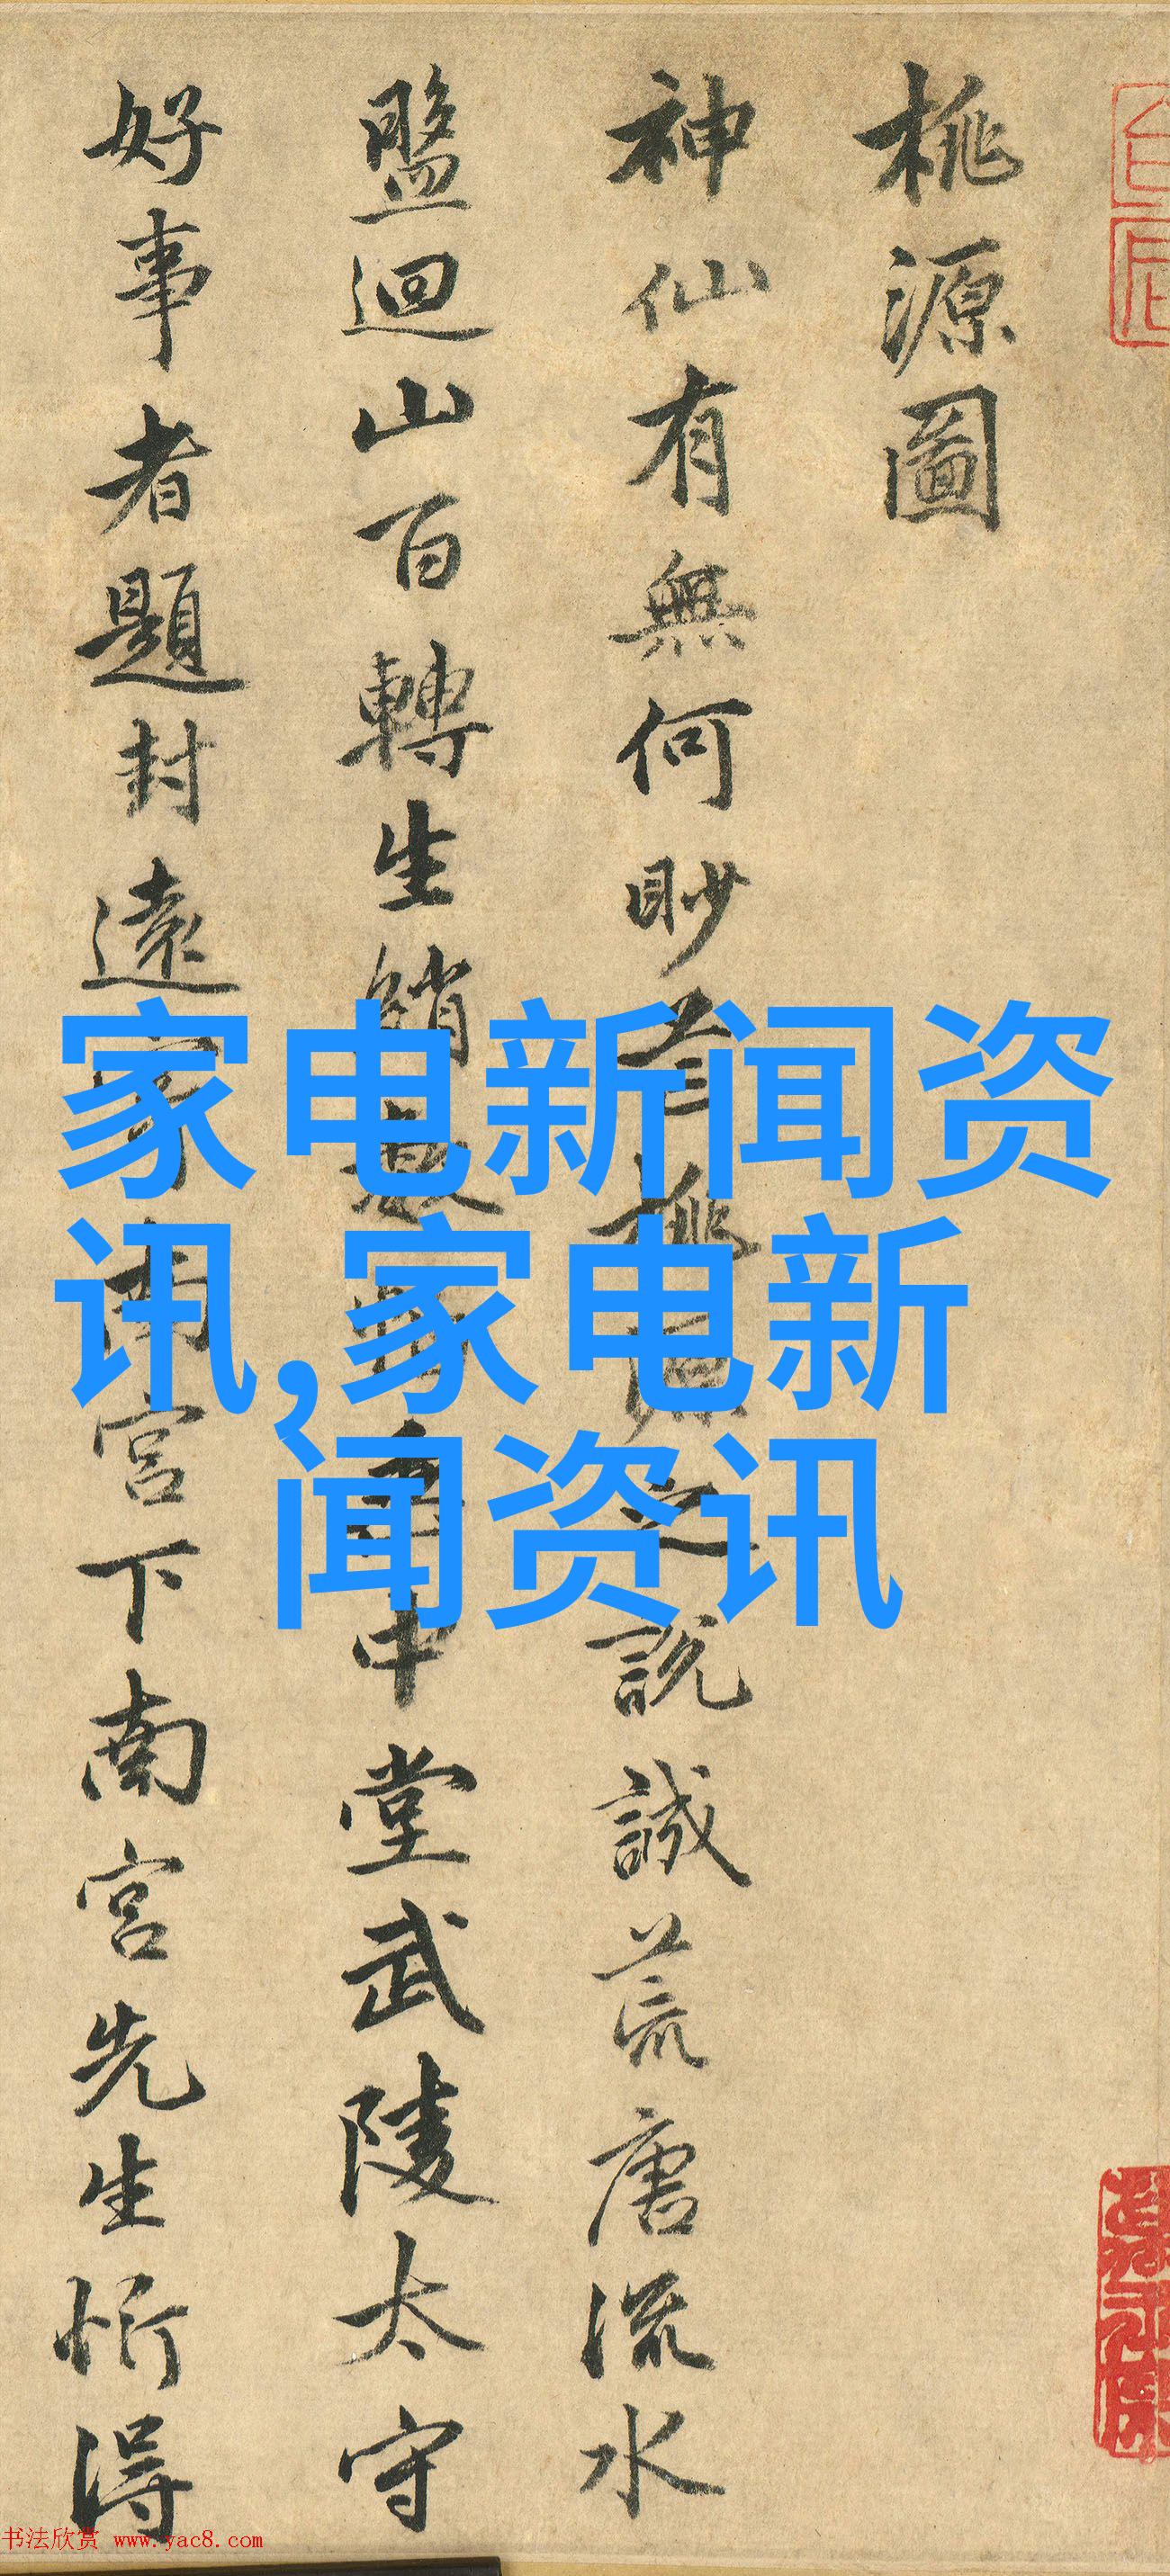 桃源圖
神仙有無何眇芒桃源之說誠荒唐流水
盤迴山百轉生綃數幅垂中堂武陵太守
好事者題封遠寄南宮下南宮先生忻得
家电新闻资
讯,家电新
闻资讯
书法欣赏 www.yac8.com